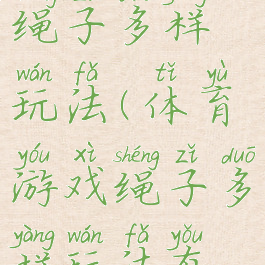 绳子多样
wán fǎ tǐ yù
玩法(体育
yóu xì shéng zi duō
游戏绳子多
yàng wán fǎ yǒu
样玩法有